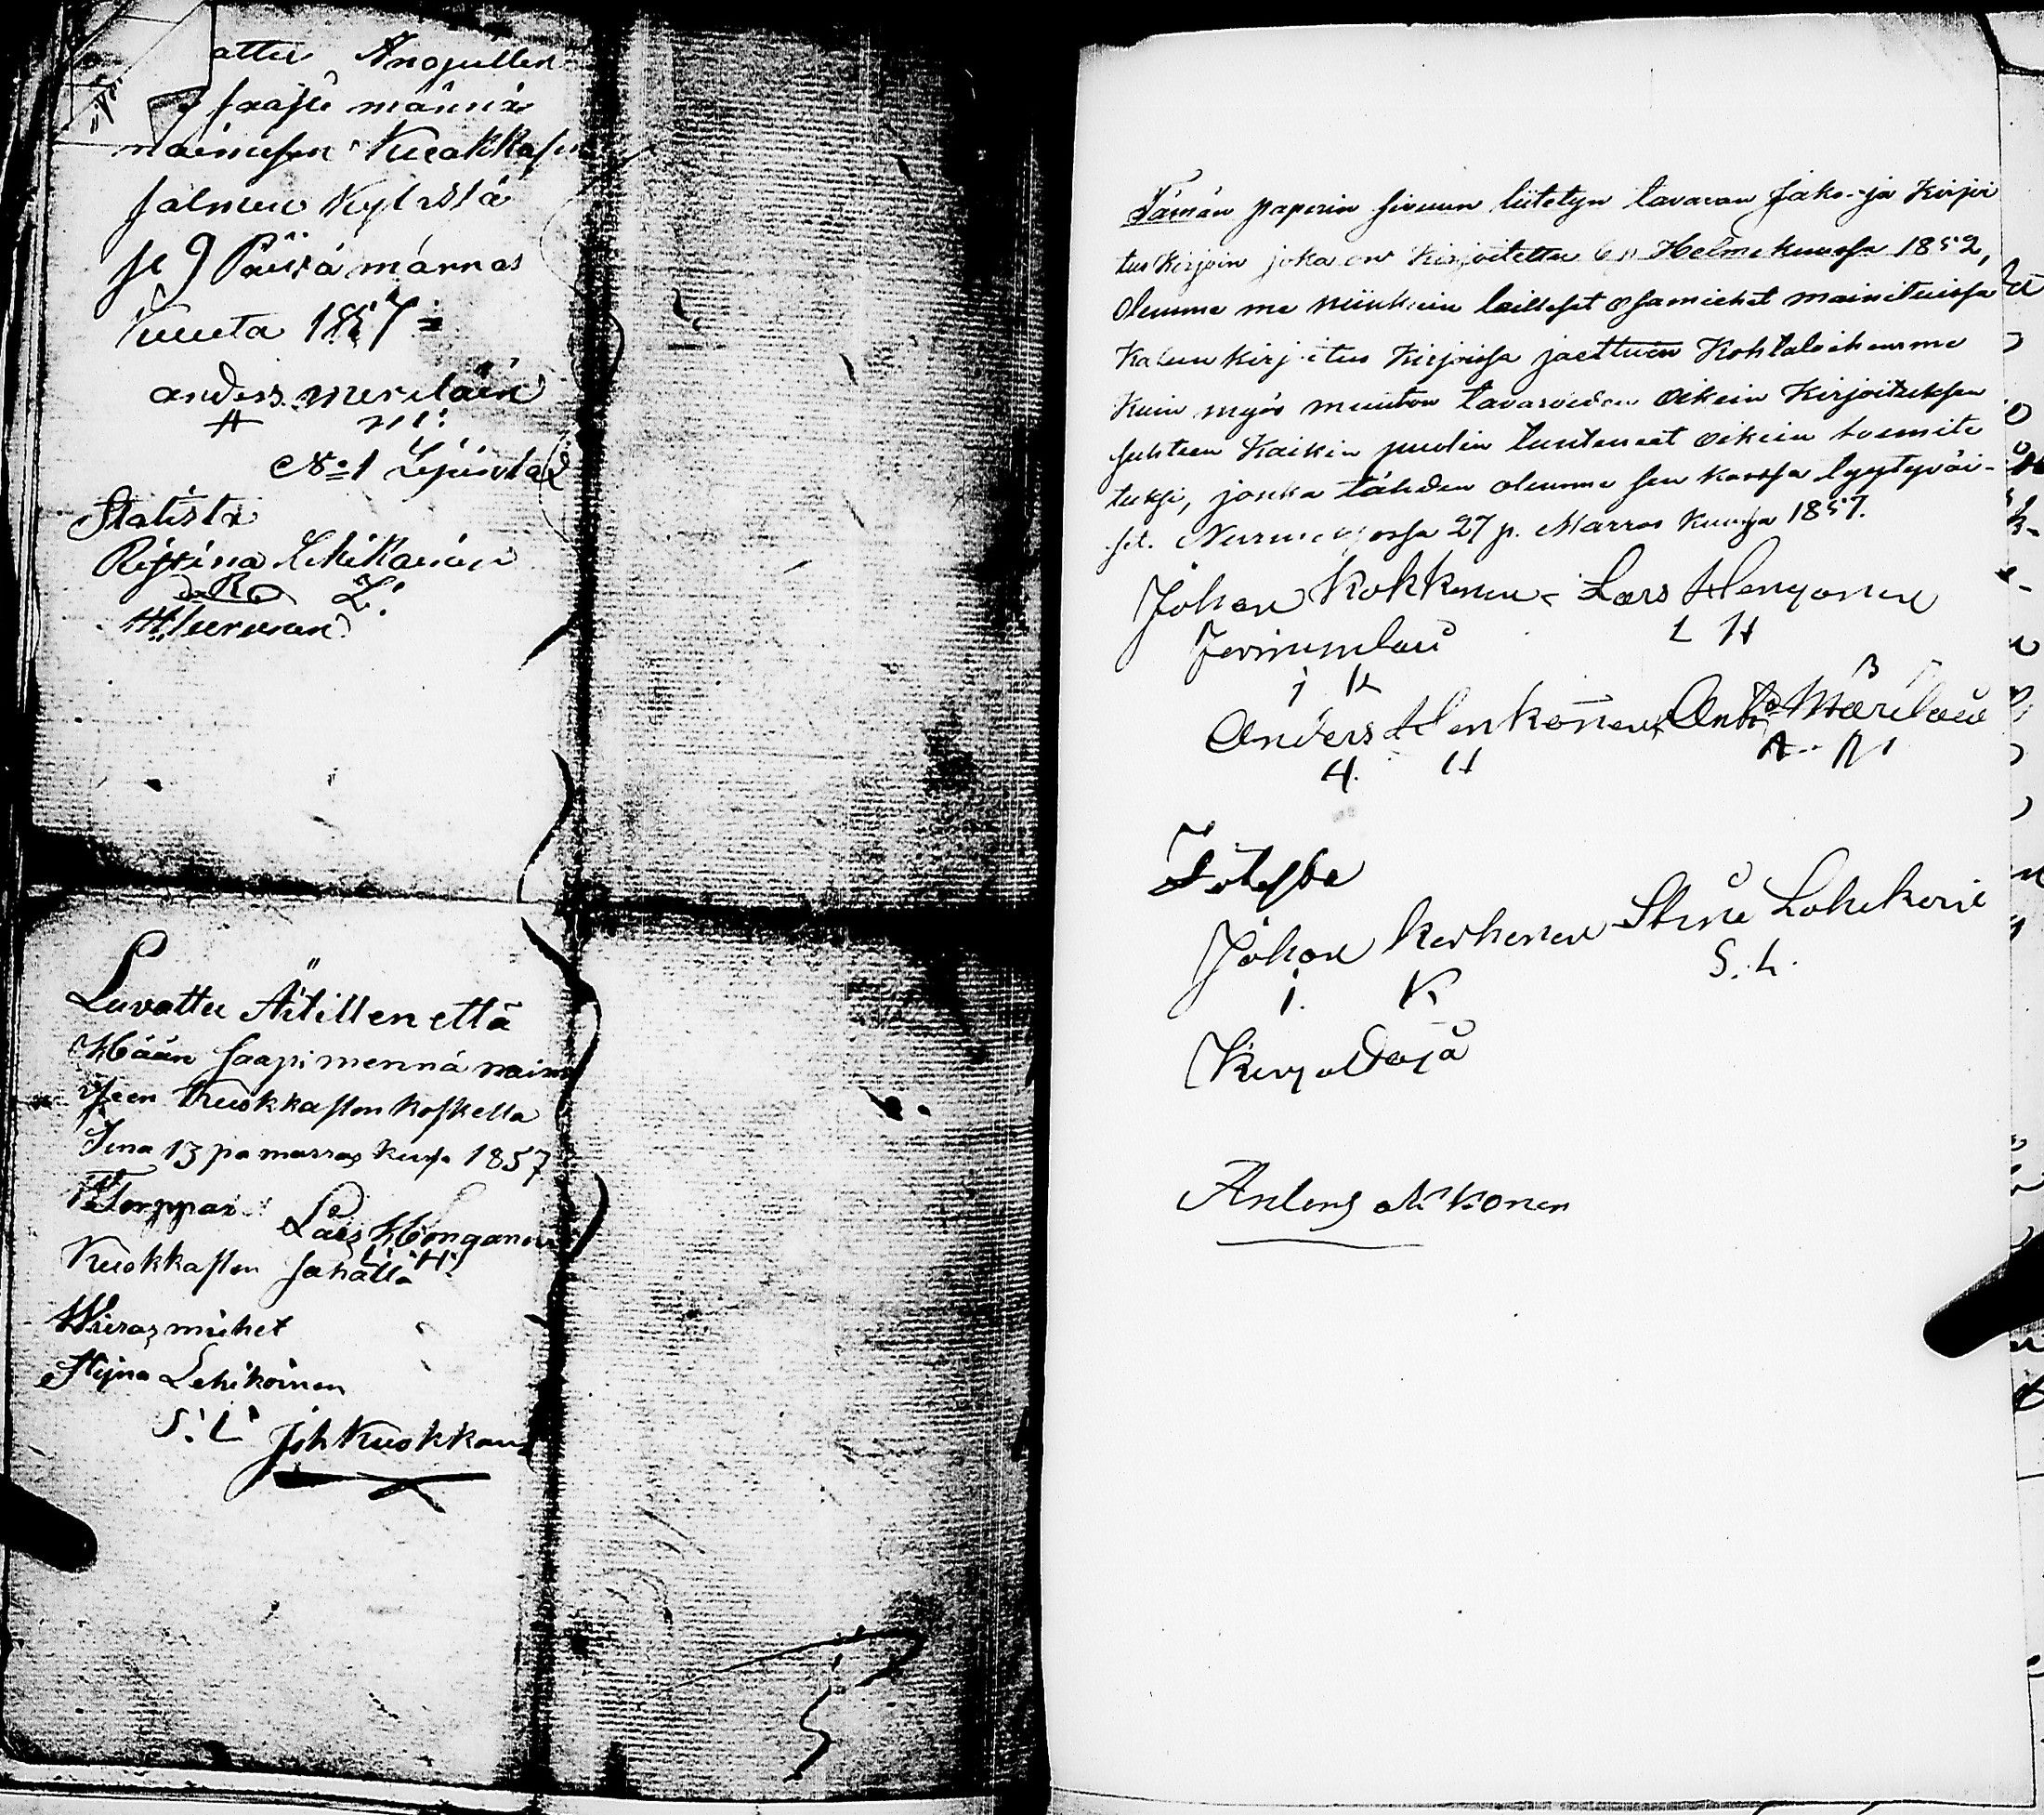 attu Anopillen
saapi männä
naimisen Kuokkasen
salmen Kylästä
se 9 Päivä márras
kuuta 1857
anders meriläin
A m:
No 1 Lipinlax
Statista
Ristina Lehikoinen
R L:
Luvattu Äitillen että
Hään saapi mennä naimi
seen Kuokkasten koskella
Tena 13 pa marras kusa 1857
Torppari Lars Hongonen
L. H.
Kuokkasten sahalla
Wieras miehet
Stijna Lehikoinen
S. L
Joh Kuokkan
Tämän paperin sivuun liitetyn tavaran jako- ja Kirjoi
tus Kirjoin joka on Kirjoitettu 6 p Helmekuussa 1852,
Olemme me niinkuin lailliset osamiehet mainituissa
Kalun kirjoitus Kirjoissa jaettuin Kohtaloihemme
Kuin myös muiton tavaroiden oikein Kirjoituksen
suhteen Kaikin puolin tunteneet oikein toimite
tuksi, jonka tähden olemme sen kanssa tyytyväi-
set. Nurmeksessa 27 p. Marras kuussa 1857.
Johan Kokkonen Lars Hongonen
L H
j k
Anders Henkonen Ant Märiläin
A. H A. M
Todista
Johan kerkonen Stina Lehikoin
S. L.
j. K
Kirjoittaja
Anders Mikkonen